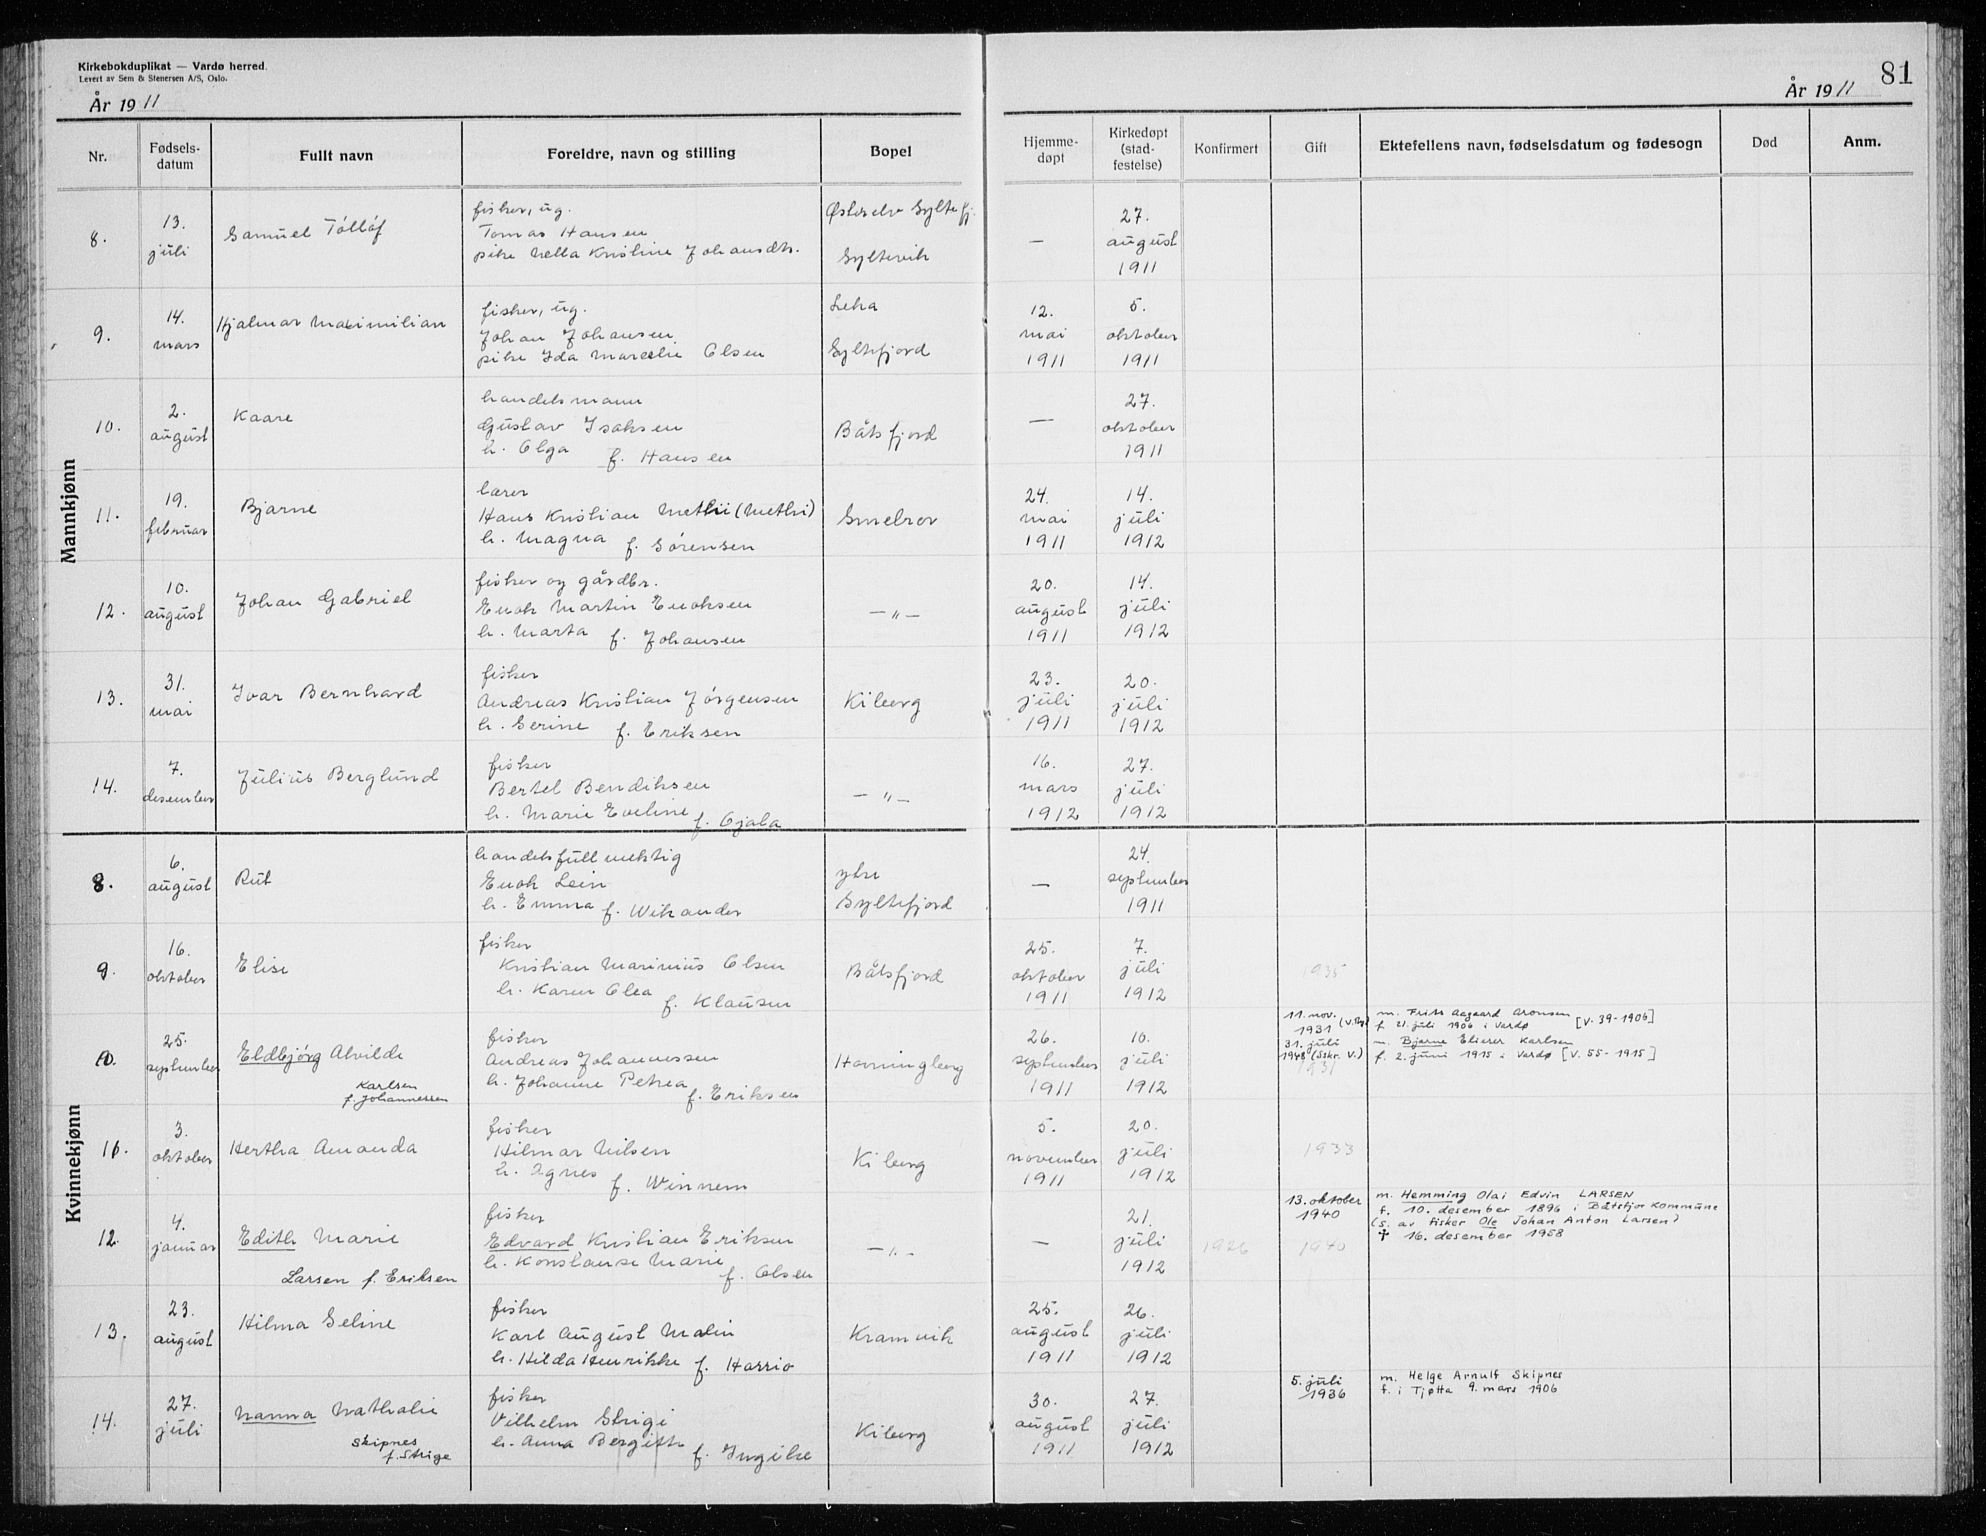 Kirkebokduplikat — Vardø herred.
Levert av Sem & Stenersen A/S, Oslo.
År 1911
81
År 1911
Nr. Fødselsdatum Fullt navn Foreldre, navn og stilling Bopel Hjemmedøpt Kirkedøpt (stadfestelse) Konfirmert Gift Ektefellens navn, fødselsdatum og fødesogn Død Anm.
Mannkjønn
8. 13. juli
Samuel Tólláf
fisker, ug.
Tomas Hansen
pike Nella Kristine Johansdtr.
Østerelv Syltefj.
Syltevik
— 27. august 1911
9. 14. mars
Hjalmar Maximilian
fisker, ug.
Johan Johansen
pike Ida Marcelie Olsen
Leka
Syltefjord
12. mai 1911
5. oktober 1911
10. 2. august
Kaare
handelsmann
Gustav Isaksen
h. Olga f. Hansen
Båtsfjord
— 27. oktober 1911
11. 19. februar
Bjarne
lærer
Hans Kristian Methii (Methi)
h. Magna f. Sørensen
Smelror
24. mai 1911
14. juli 1912
12. 10. august
Johan Gabriel
fisker og gårdbr.
Enok Martin Enoksen
h. Marta f. Johansen
— " —
20. august 1911
14. juli 1912
13. 31. mai
Ivar Bernhard
fisker
Andreas Kristian Jórgensen
h. Serine f. Eriksen
Kiberg
23. juli 1911
20. juli 1912
14. 7. desember
Julius Berglund
fisker
Bertel Bendiksen
h. Marie Eveline f. Ojala
— " —
16. mars 1912
27. juli 1912
Kvinnekjønn
8. 6. august
Rut
handelsfullmektig
Enok Lein
h. Emma f. Wikander
ytre
Syltefjord
— 24. september 1911
9. 16. oktober
Elise
fisker
Kristian Marinius Olsen
h. Karen Olea f. Klausen
Båtsfjord
25. oktober 1911
7. juli 1912
1935
10. 25. september
Eldbjórg Alvilde
Karlsen
f. Johannessen
fisker
Andreas Johannessen
h. Johanne Petrea f. Eriksen
Havningberg
26. september 1911
10. juli 1912
11. nov. 1931
m. Frits Aagaard Aronsen
f. 21. juli 1906 i Vardø [V. 39-1906]
31. juli 1948 (Sskr. V.)
m. Bjarne Elierer Karlsen
f. 2. juni 1915 i Vardø [V. 55-1915]
1931
11. 3. oktober
Hertha Amanda
fisker
Hilmar Nilsen
h. Agnes f. Winnem
Kiberg
5. november 1911
20. juli 1912
1933
12. 4. januar
Edith Marie
Larsen f. Eriksen
fisker
Edvard Kristian Eriksen
h. Konstanse Marie f. Olsen
— " —
— 21. juli 1912
1926
13. oktober 1940
1940
m. Hemming Olai Edvin LARSEN
f. 10. desember 1896 i Båtsfjor kommune
(s. av fisker Ole Johan Anton Larsen)
† 16. desember 1958
13. 23. august
Hilma Seline
fisker
Karl August Malin
h. Hilda Henrikke f. Harrio
Kramvik
25. august 1911
26. juli 1912
14. 27. juli
Nanna Nathalie
Skipnes
f. Strige
fisker
Vilhelm Strigi
h. Anna Bergitte f. Ingilæ
Kiberg
30. august 1911
27. juli 1912
5. juli 1936
m. Helge Arnulf Skipnes
f. i Tjøtta 9. mars 1906